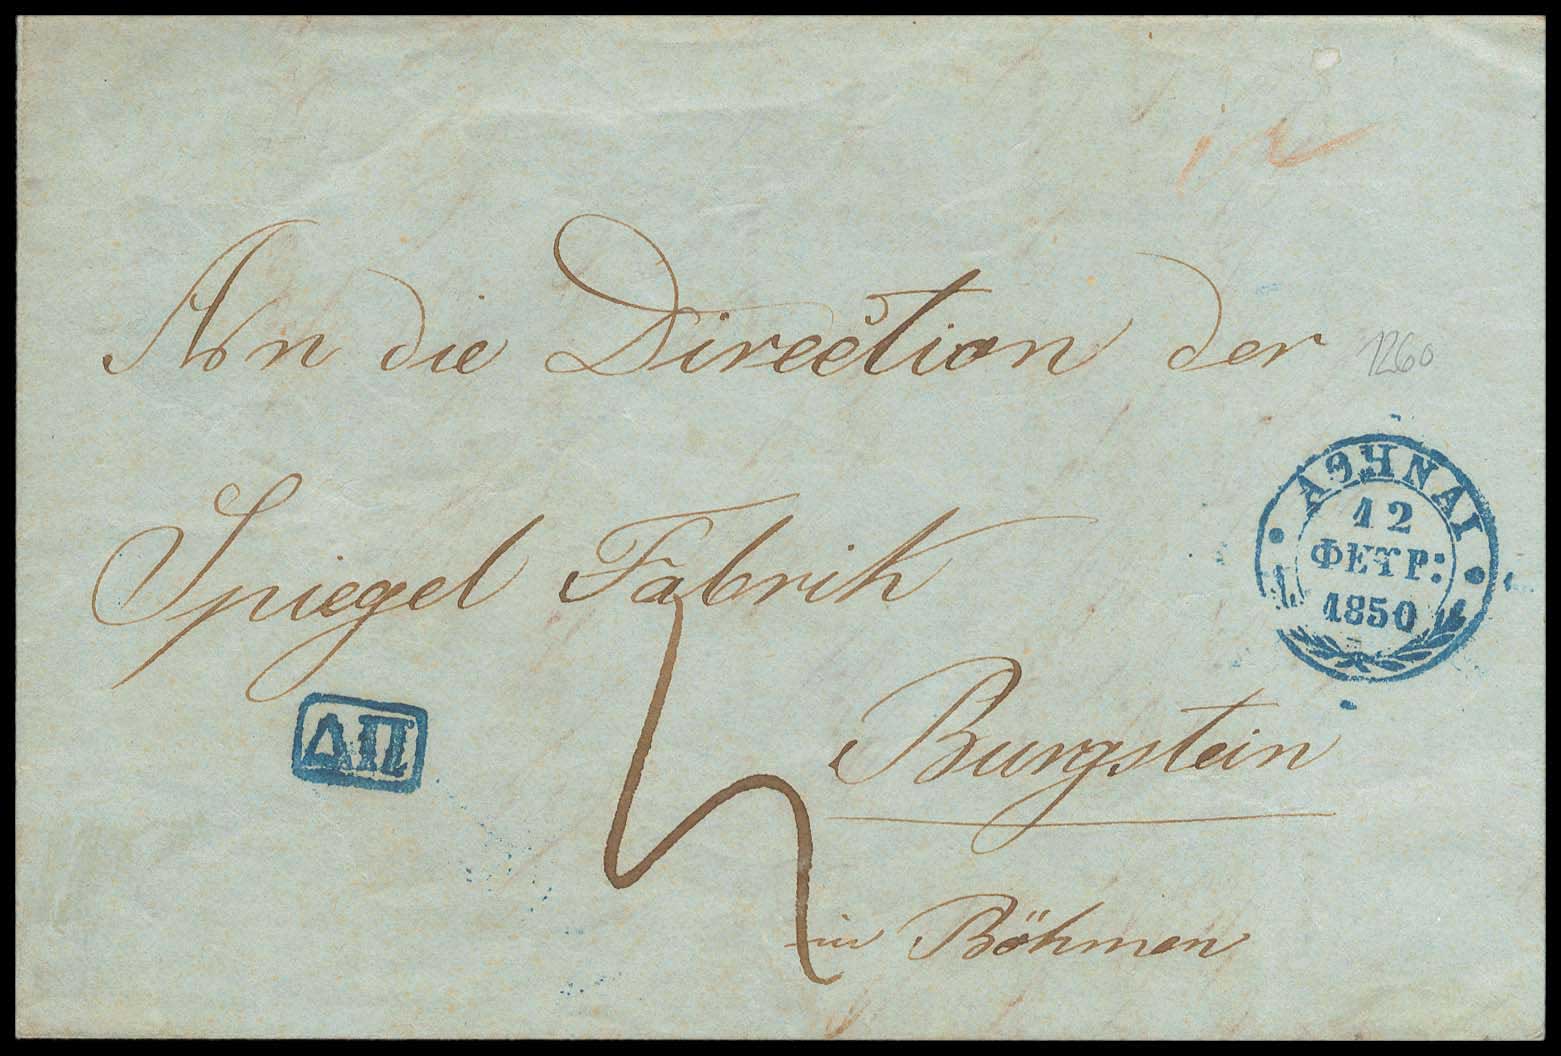 An die Direction der
1260
ΑΘΗΝΑΙ
12
ΦΕΤΡ:
1850
Spiegel Fabrik
ΔΠ
Burgstein
in Böhmen